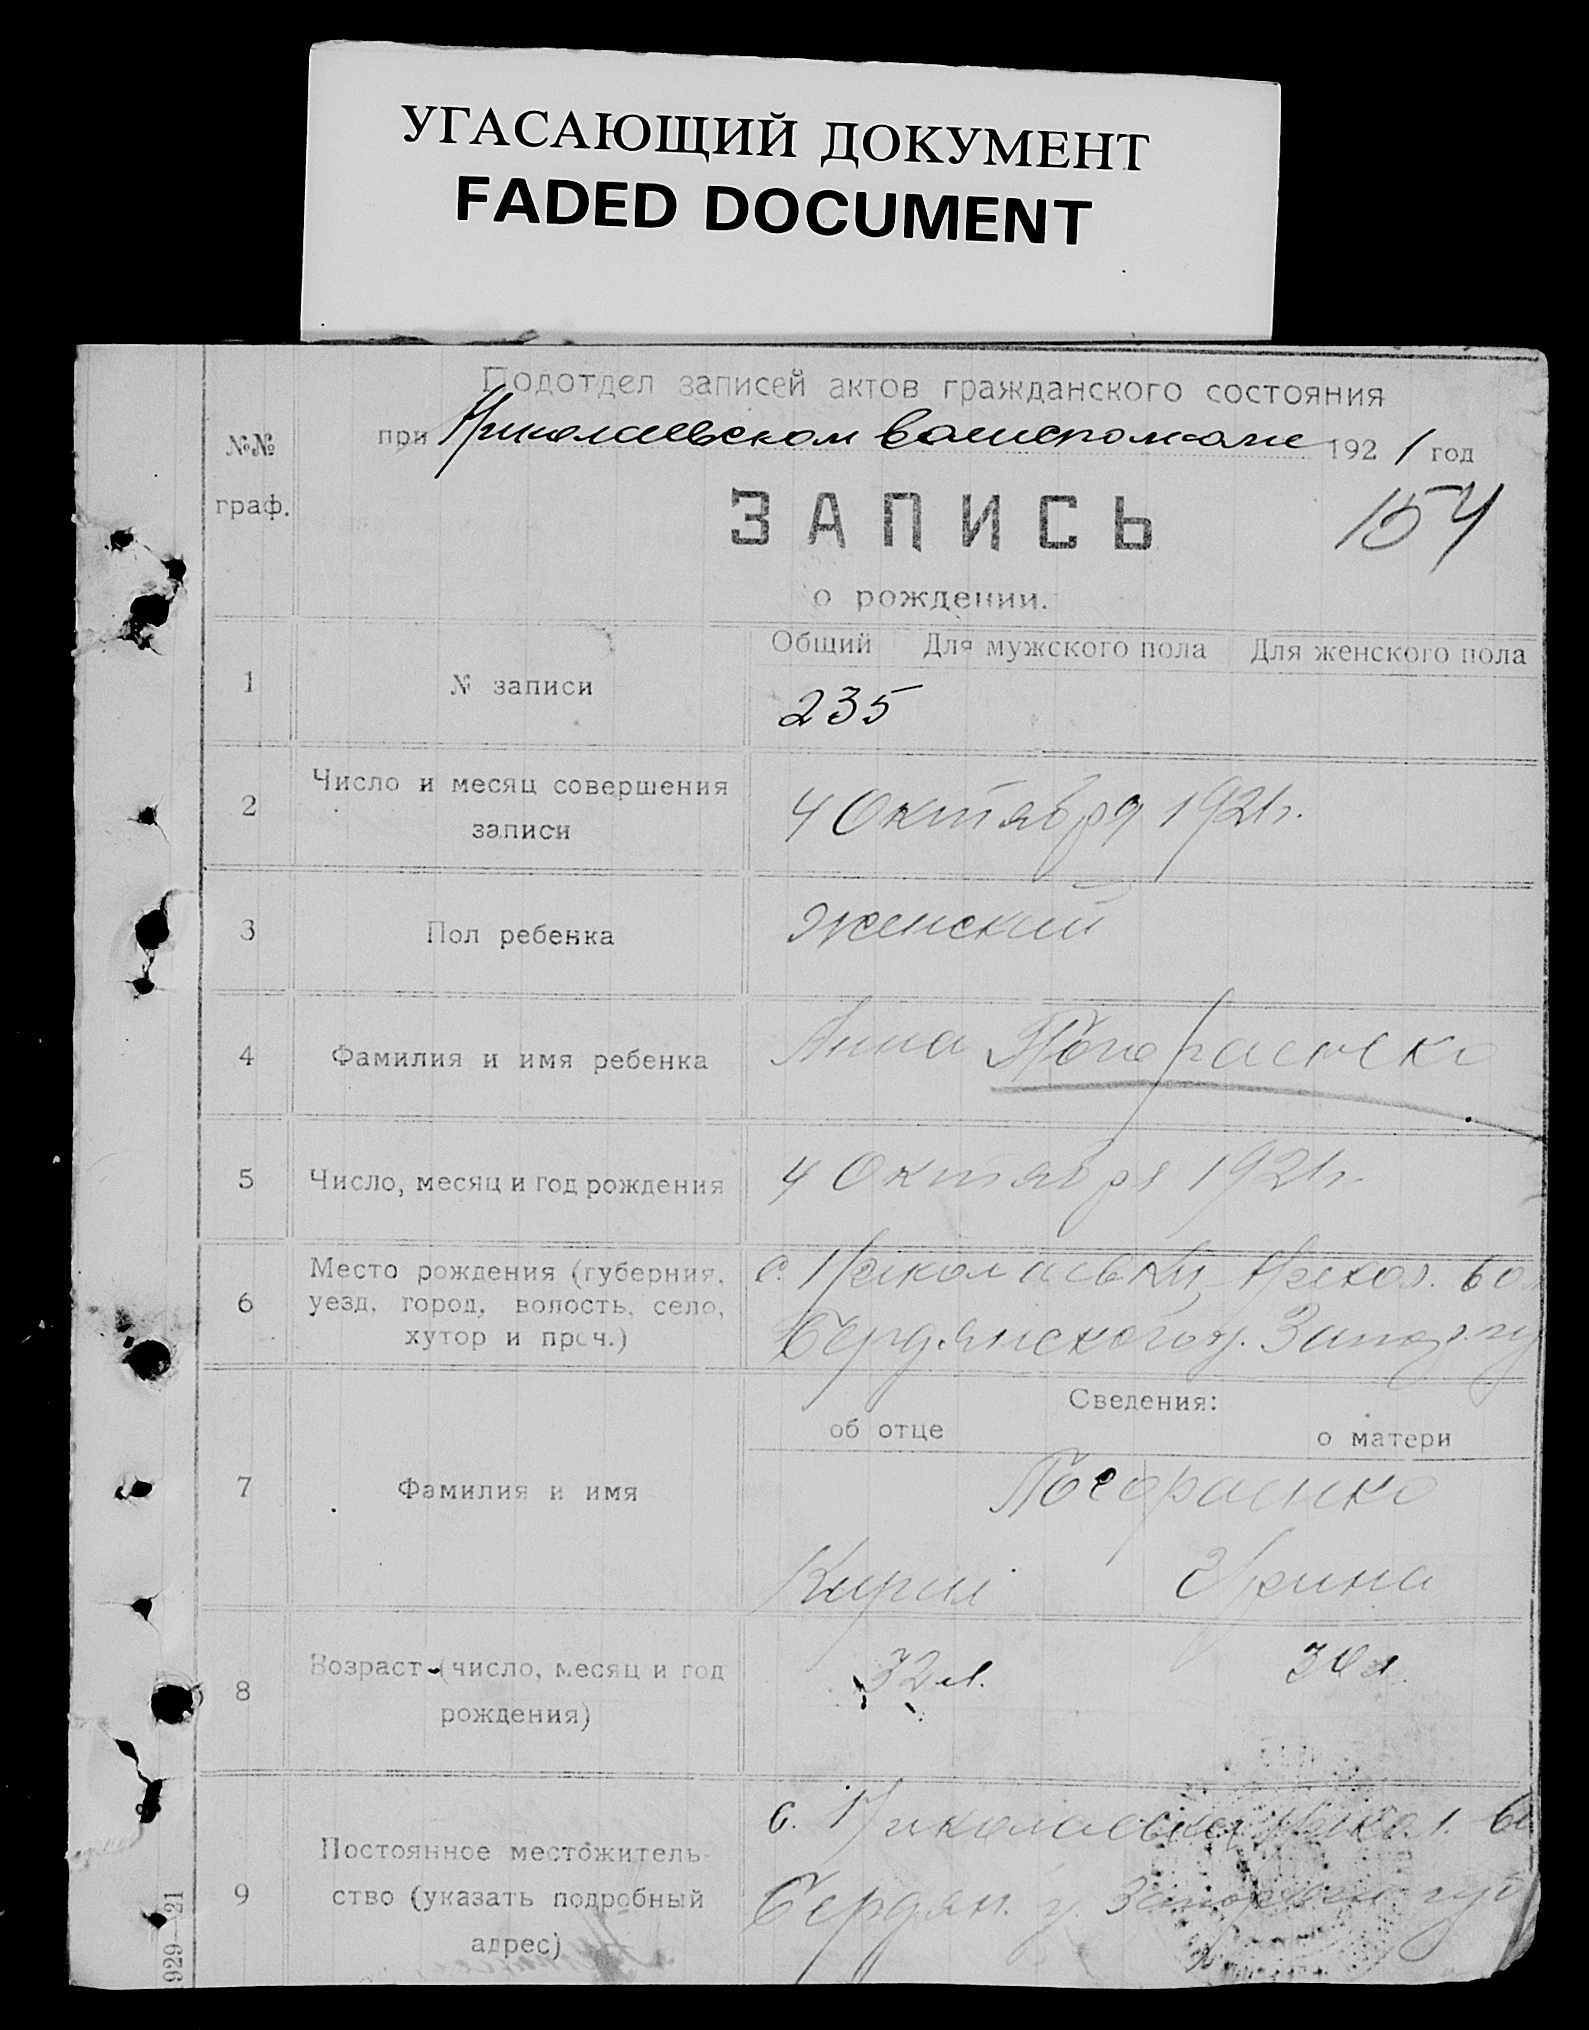 УГАСАЮЩИЙ ДОКУМЕНТ
FADED DOCUMENT
Подотдел записей актов гражданского состояния
при Николаевском волисполкоме 1921 год
№№
граф.
ЗАПИСЬ
154
о рождении.
Общий Для мужского пола Для женского пола
1 № записи
235
2 Число и месяц совершения
записи
4 Октября 1921г.
3 Пол ребенка
Женский
4 Фамилия и имя ребенка
Анна
5 Число, месяц и год рождения
4 Октября 1921г.
6 Место рождения (губерния,
уезд, город, волость, село,
хутор и проч.)
с. Николаевки Никол. вол
Бердянского у. Запор. гу
Сведения:
об отце о матери
7 Фамилия и имя
Кирил Ирина
8 Возраст (число, месяц и год
рождения)
32 л. 30 л.
9 Постоянное местожитель-
ство (указать подробный
адрес)
с. Николаевка Никол. во
Бердян. у. губ
929—21